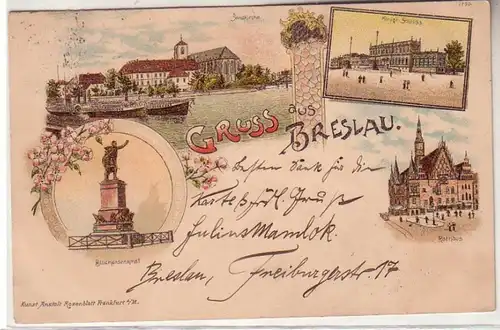 Sandkirche
Königl. Schloss
GRUSS aus BRESLAU.
besten Dank für die
Karte u. frdl. Gruß
Julius Mamlok.
Breslau, Freiburgerstr. 17
Blücherdenkmal
Rathaus
Kunst Anstalt Rosenblatt Frankfurt a/M.